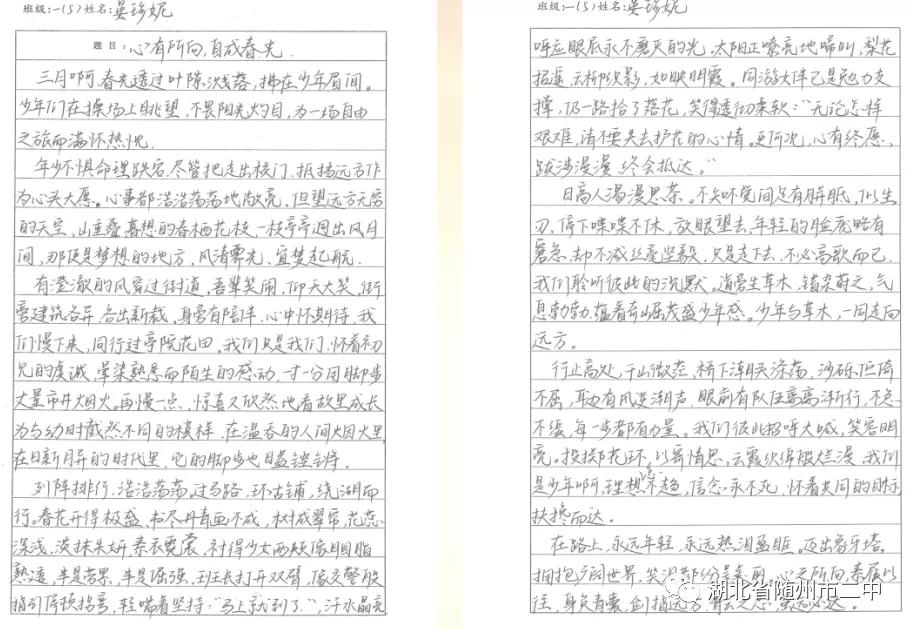 班级:一(5)姓名:吴珍妮
题目:心有所向,自成春光.
三月啊,春光透过叶隙浅落,拂在少年眉间。
少年们在操场上眺望,不畏阳光灼目,为一场自由
之旅而满怀热忱.
年少不惧命理跌宕.尽管把走出校门,抵挡远方作
为心头大愿。心事都浩浩荡荡地敞亮,但望远方无穷
的天空,山重叠喜想的春栖花枝,一枝亭亭迥出风月
间,那便是梦想的地方,风清霁光、宜梦起航.
有澄澈的风穿过街道,吾辈笑闹,仰天大笑,街
旁建筑各异,各出新裁,身旁有陪伴,心中怀期待,我
们慢下来,同行过亭院花田,我们只是我们,怀着初
见的虔诚,晕染熟悉而陌生的感动,寸一分用脚步
丈量市井烟火。再慢一点,惊喜又欣然地看故里成长
为与幼时截然不同的模样,在温吞的人间烟火里,
在日新月异的时代里,它的脚步也日益铿锵.
列阵排行,浩浩荡荡,过马路,环古铺,绕湖而
行。春花开得极盛,书尽丹青画不成,树成翠帘,花蕊
深浅,淡抹朱妍,素衣霓裳,衬得少女两颊像胭脂
熟透,半是苦果,半是倔强,班长打开双臂,像交警般
指引停顿拐弯,轻喘着坚持:“马上就到了”,汗水晶亮
班级:一(5)姓名:吴珍妮
呼应眼底永不磨灭的光.太阳正嘹亮地啼叫,梨花
招遥,云桥次影,如映明霞。同游女伴已是勉力支
撑,仍一路拾了落花,笑得透彻柔软:“无论怎样
艰难,请不要失去护花的心情。更何况,心有终愿,
跋涉漫漫,终会抵达。”
日高人渴漫思茶。不知不觉间足有胼胝,似生
刃,停下喋喋不休,放眼望去,年轻的脸庞略有
窘急,却不减丝毫坚毅,只是走下去,不必高歌而已.
我们聆听彼此的沉默。道旁生草木,错杂蔚之,气
息勃勃,蕴着奇崛茂盛少年感。少年与草木,一同走向
远方。
行止高处,千山微茫,桥下潮头涤荡,沙砾依倚
不屈,耳边有风连潮声,眼前有队伍高高渐行,不息
不缓,每一步都有力量。我们彼此招呼大喊,笑容明
亮。投掷花环,以寄情思,云霞似绵般烂漫,我们
是少年啊,理想不老,信念永不死,怀着共同的目标,
扶搀而达。
在路上,永远年轻,永远热泪盈眶,迈出象牙塔,
拥抱广阔世界,笑
心之所向,素履以
往,身负青囊,剑指远方
湖北省随州市二中